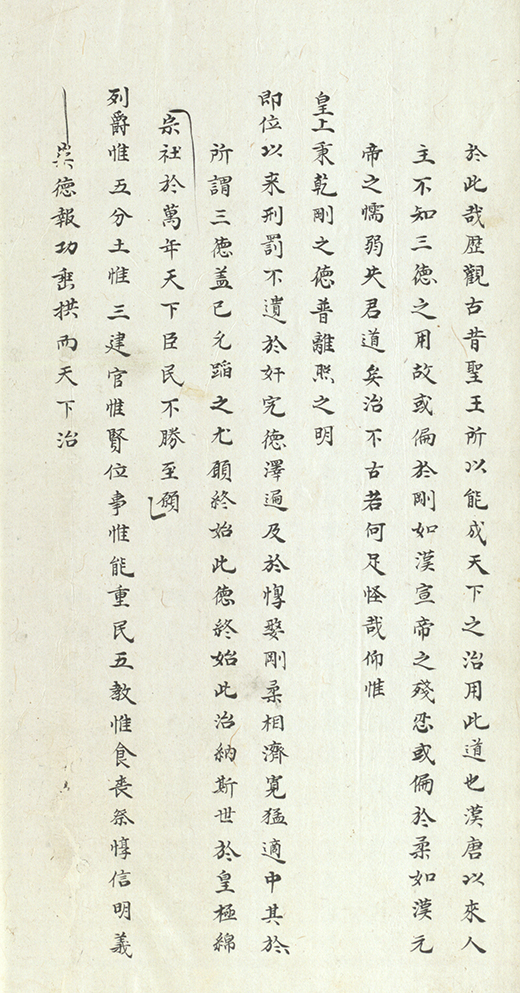 於此哉歷觀古昔聖王所以能成天下之治用此道也漢唐以來人
主不知三德之用故或偏於剛如漢宣帝之殘忍或偏於柔如漢元
帝之懦弱失君道矣治不古若何足怪哉仰惟
皇上秉乾剛之德普離照之明
即位以来刑罰不遺於奸宄德澤遍及於惸嫠剛柔相濟寬猛適中其於
所謂三德盖已允蹈之尤願終始此德終始此治納斯世於皇極綿
宗社於萬年天下臣民不勝至願
列爵惟五分土惟三建官惟賢位事惟能重民五教惟食喪祭惇信明義
崇德報功垂拱而天下治